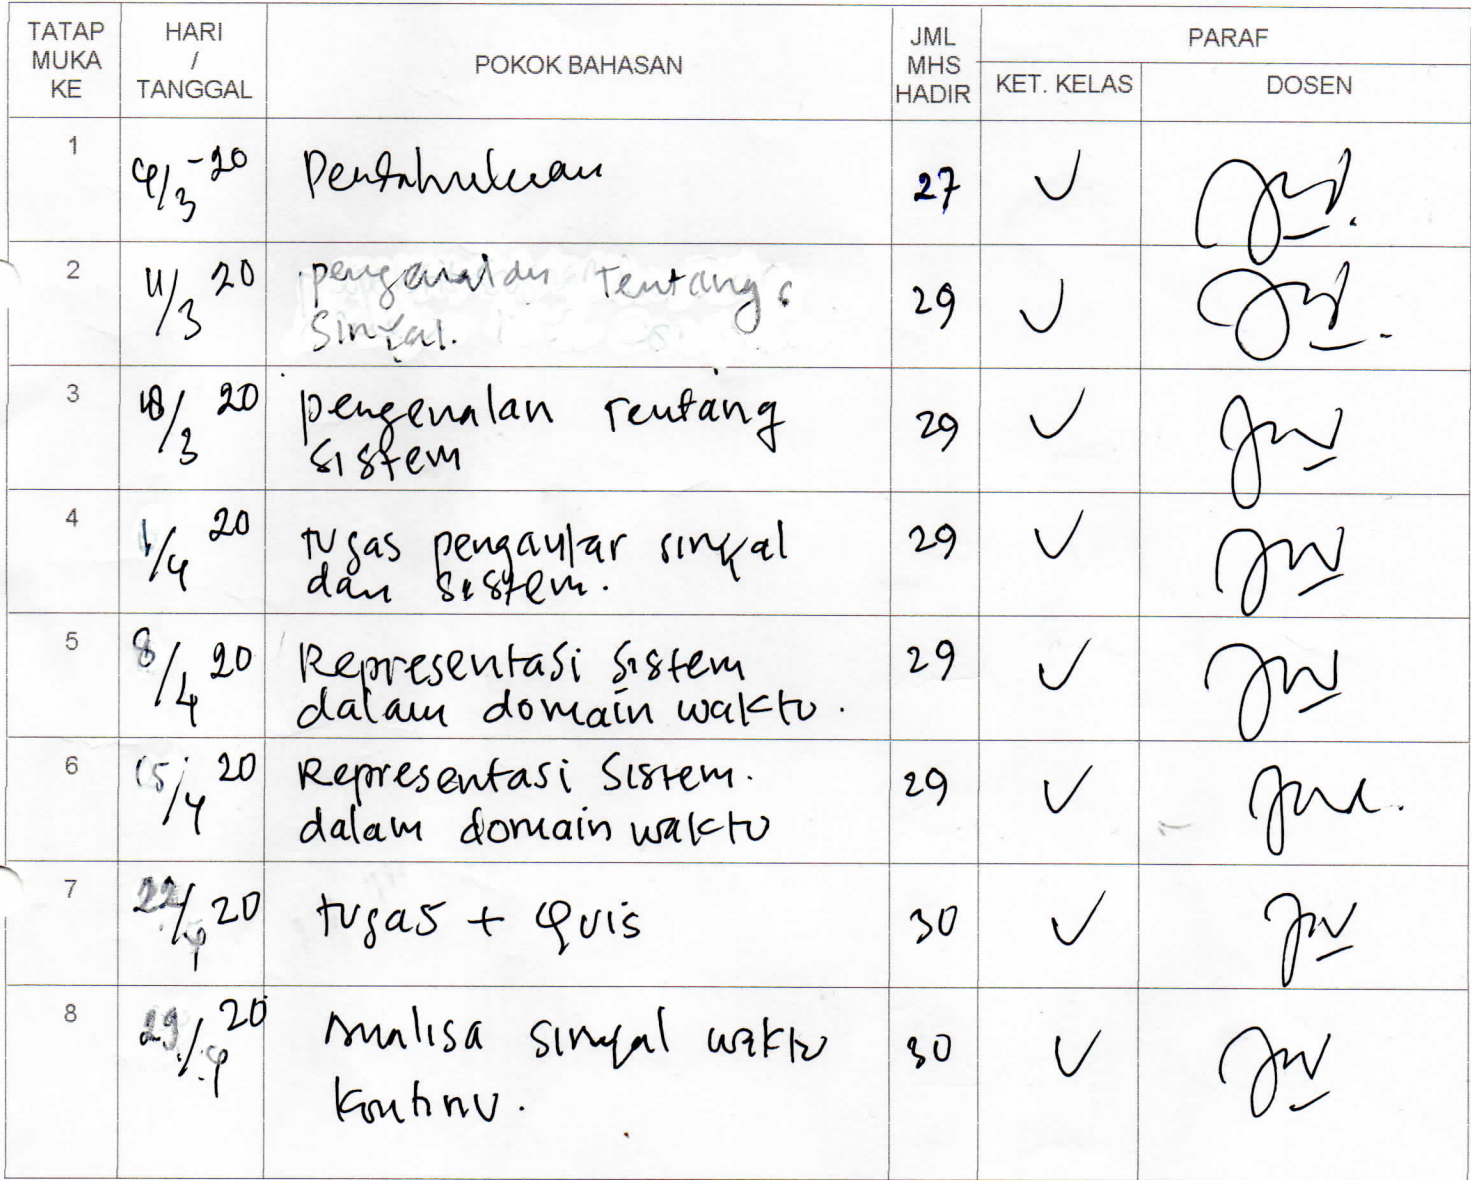 TATAP MUKA KE
HARI / TANGGAL
POKOK BAHASAN
JML MHS HADIR
PARAF
KET. KELAS
DOSEN
1 4/3-20 Pendahuluan 27 ✓
2 11/3 20 pengenalan tentang
sinyal. 29 ✓
3 18/3 20 pengenalan tentang
sistem 29 ✓
4 1/4 20 tugas pengantar sinyal
dan sistem. 29 ✓
5 8/4 20 Representasi sistem
dalam domain waktu. 29 ✓
6 15/4 20 Representasi Sistem.
dalam domain waktu 29 ✓
7 22/4 20 tugas + Quis 30 ✓
8 29/4 20 Analisa sinyal waktu
kontinu. 30 ✓